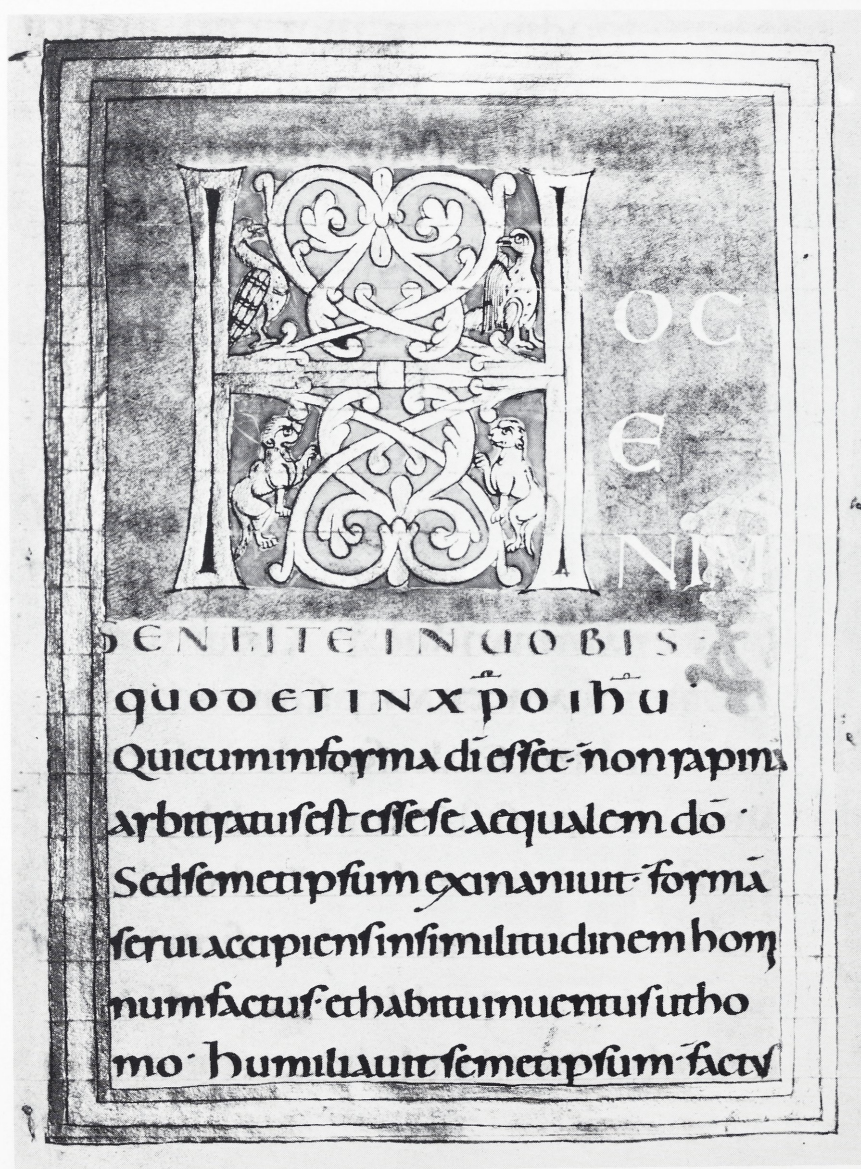 H
OC
E
NIM
SENTITE IN UOBIS·
quod et IN xp̄o ih̄u
Qui cum in forma dī esset· non rapinā
arbitratus est esse se aequalem dō·
Sed semetipsum exinaniuit· formā
serui accipiens in similitudinem homi
num factus· et habitu inuentus ut ho
mo· humiliauit semetipsum· factus